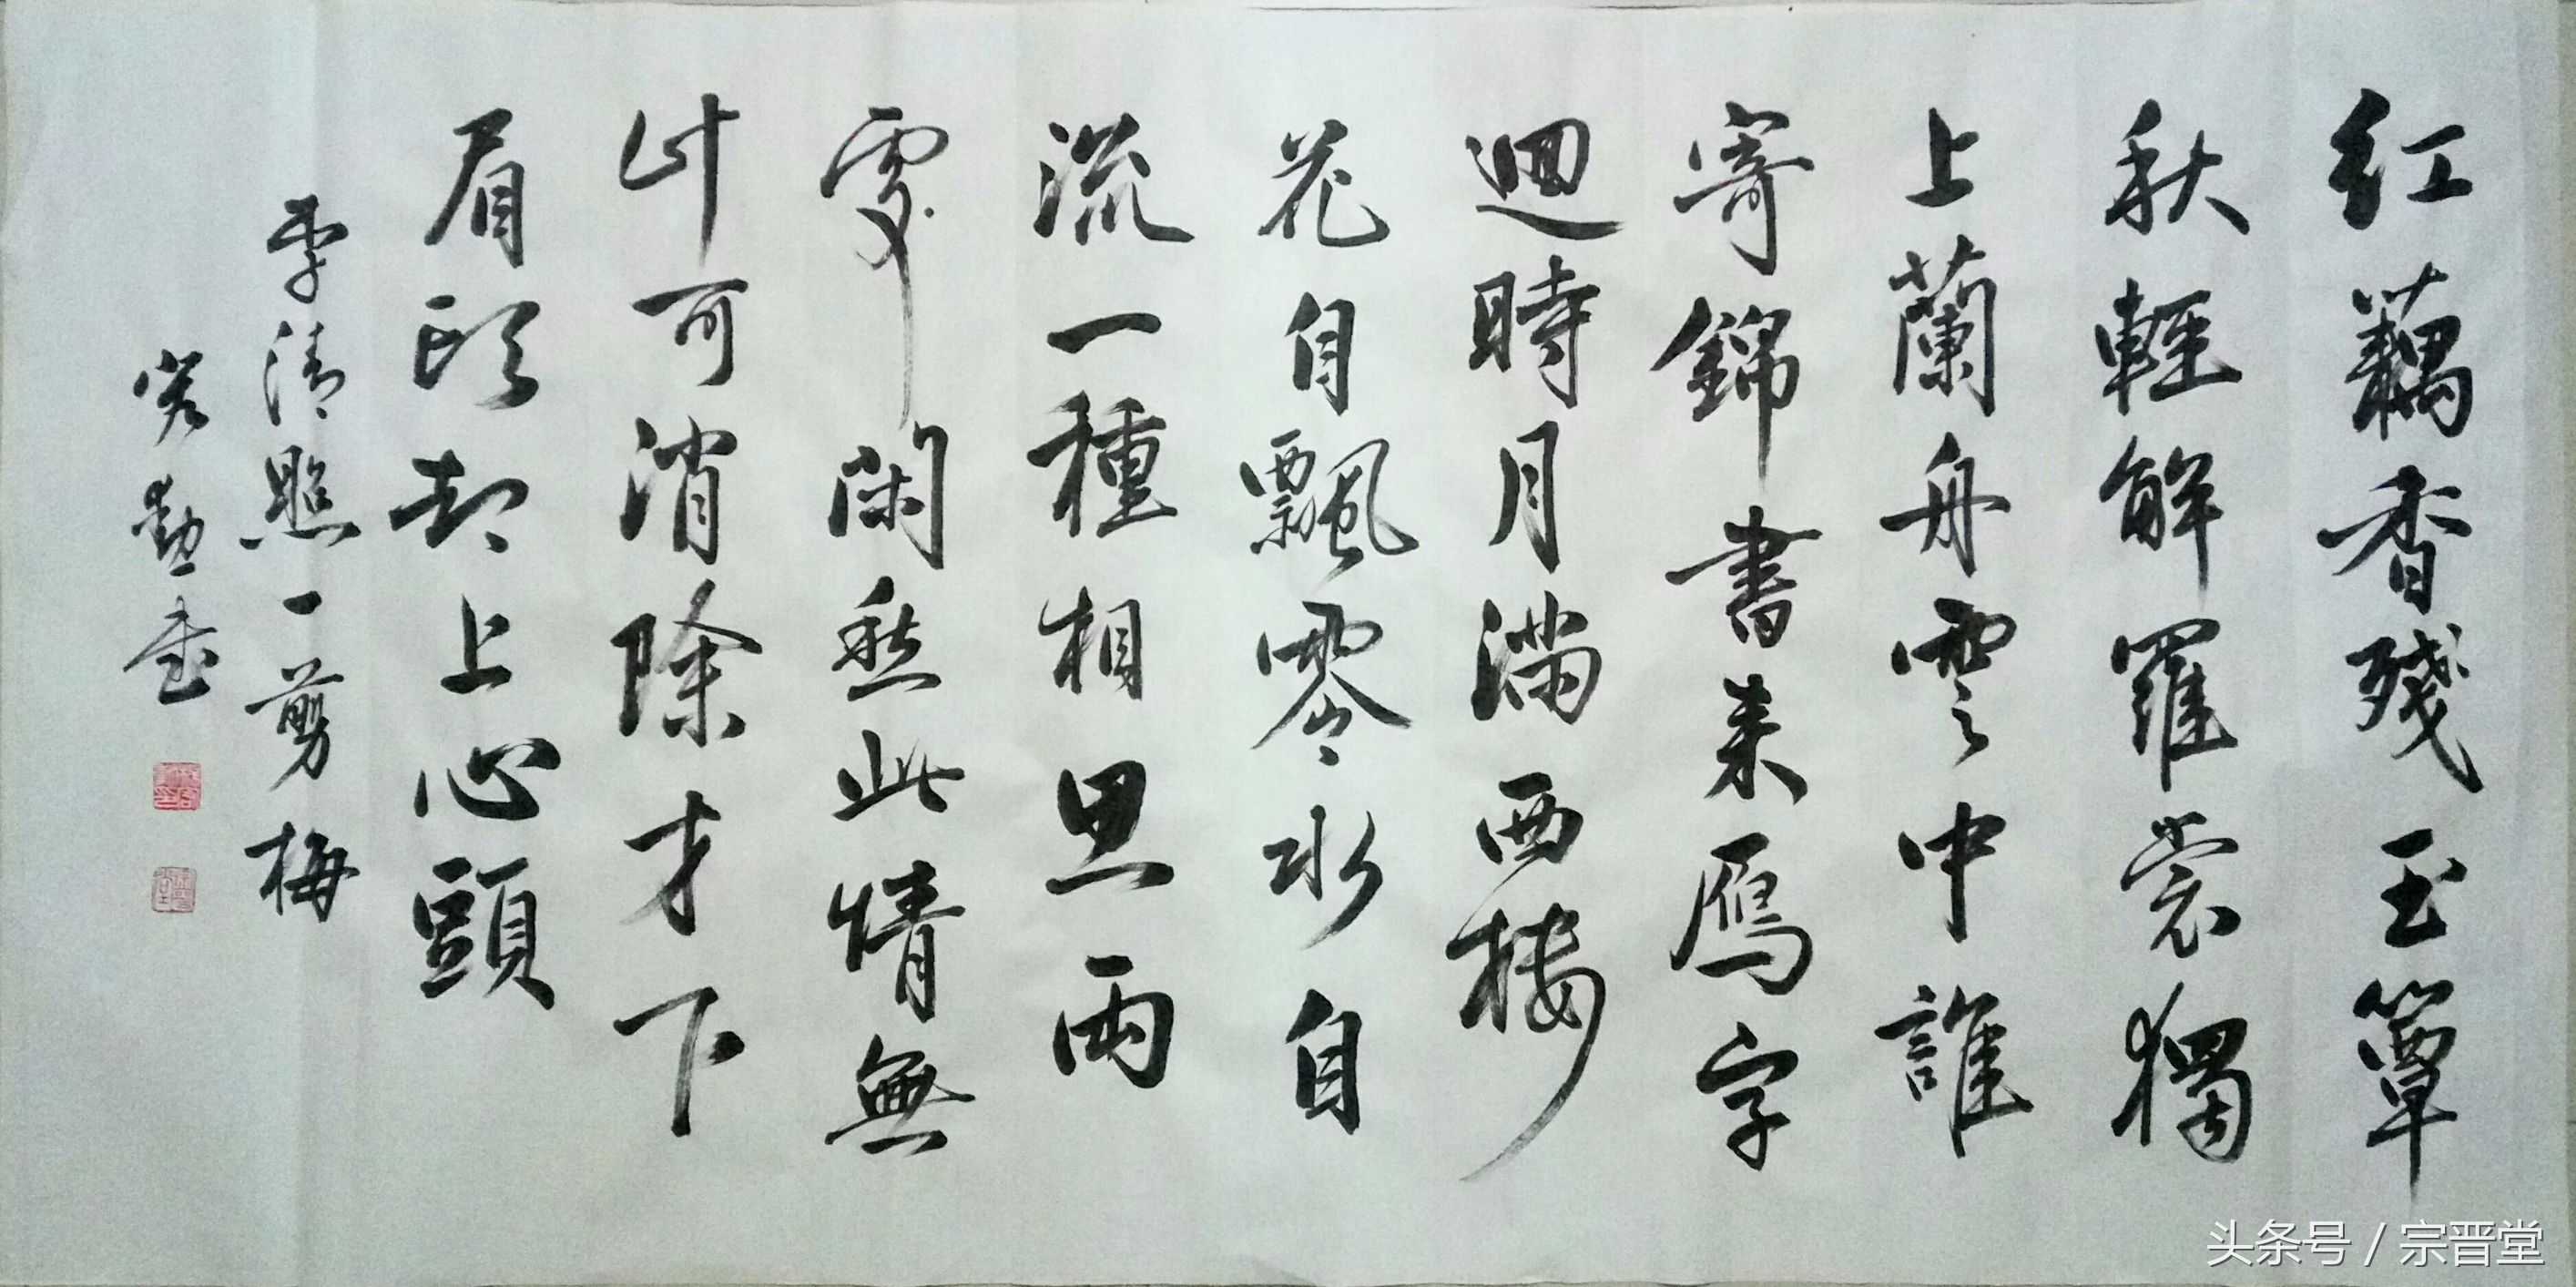 红藕香殘玉簟
秋輕解羅裳獨
上蘭舟雲中誰
寄錦書來鴈字
迴時月滿西樓
花自飄零水自
流一種相思兩
處閑愁此情無
計可消除才下
眉頭却上心頭
李清照一剪梅
头条号 / 宗晋堂